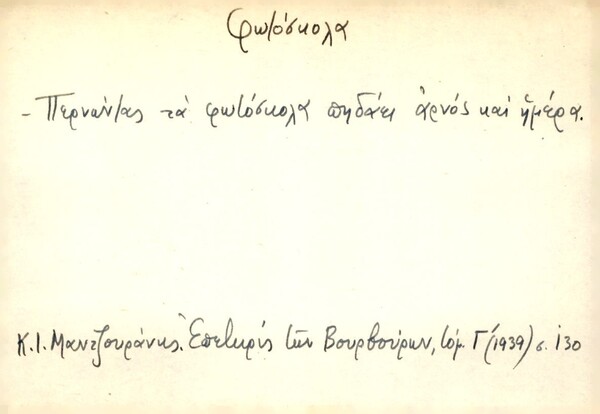 φωτόσκολα
- Περνώντας τὰ φωτόσκολα πηδάει ἀρνός καὶ ἡμέρα.
Κ.Ι. Μαντζουράνης. Ἐπετηρίς τῶν Βουρβούρων, τόμ. Γ΄ (1939) σ. 130